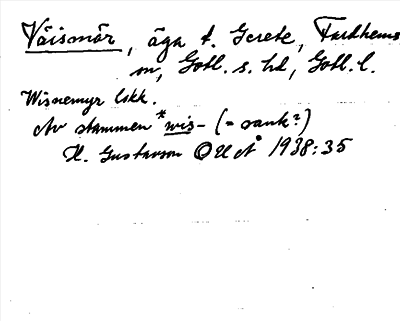 Väismör, äga t. Gerete, Fardhems
sn, Gotl. s. hd, Gotl. l.
Wisnemyr lskk.
Av stammen *wis- (= sank?)
H. Gustavson OUÅ 1938:35